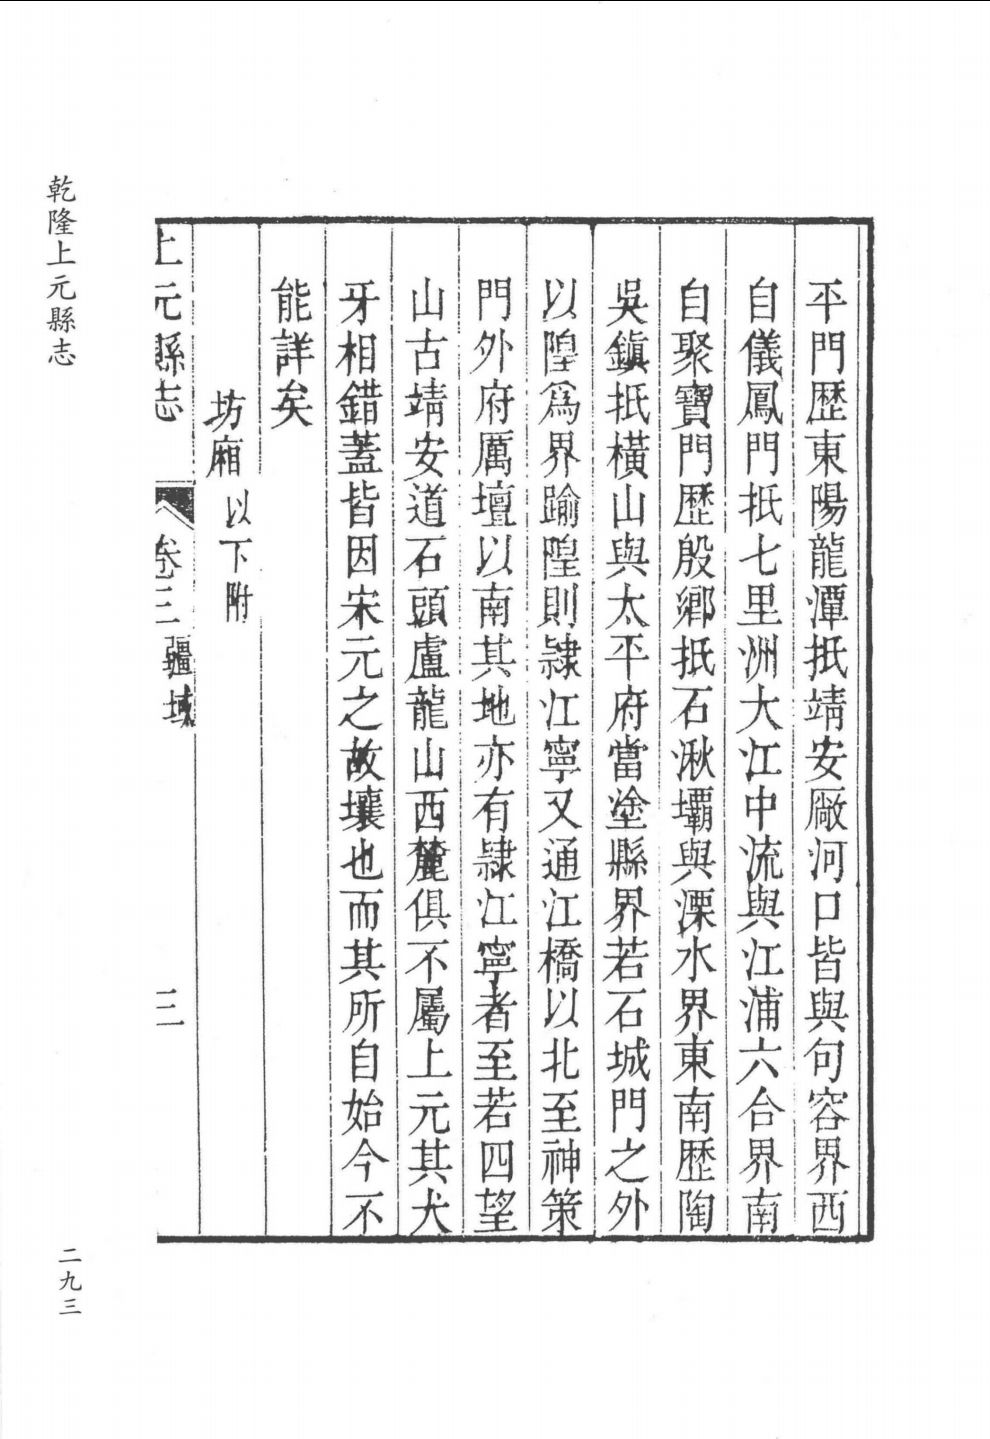 平門歷東陽龍潭抵靖安厰河口皆與句容界西
自儀鳳門抵七里洲大江中流與江浦六合界南
自聚寶門歷殷鄉抵石湫壩與溧水界東南歷陶
吳鎭抵橫山與太平府當塗縣界若石城門之外
以隍爲界踰隍則隷江寧又通江橋以北至神策
門外府厲壇以南其地亦有隷江寧者至若四望
山古靖安道石頭盧龍山西麓俱不屬上元其犬
牙相錯蓋皆因宋元之故壤也而其所自始今不
能詳矣
坊廂以下附
上元縣志 卷三疆域 三
乾隆上元縣志
二九三